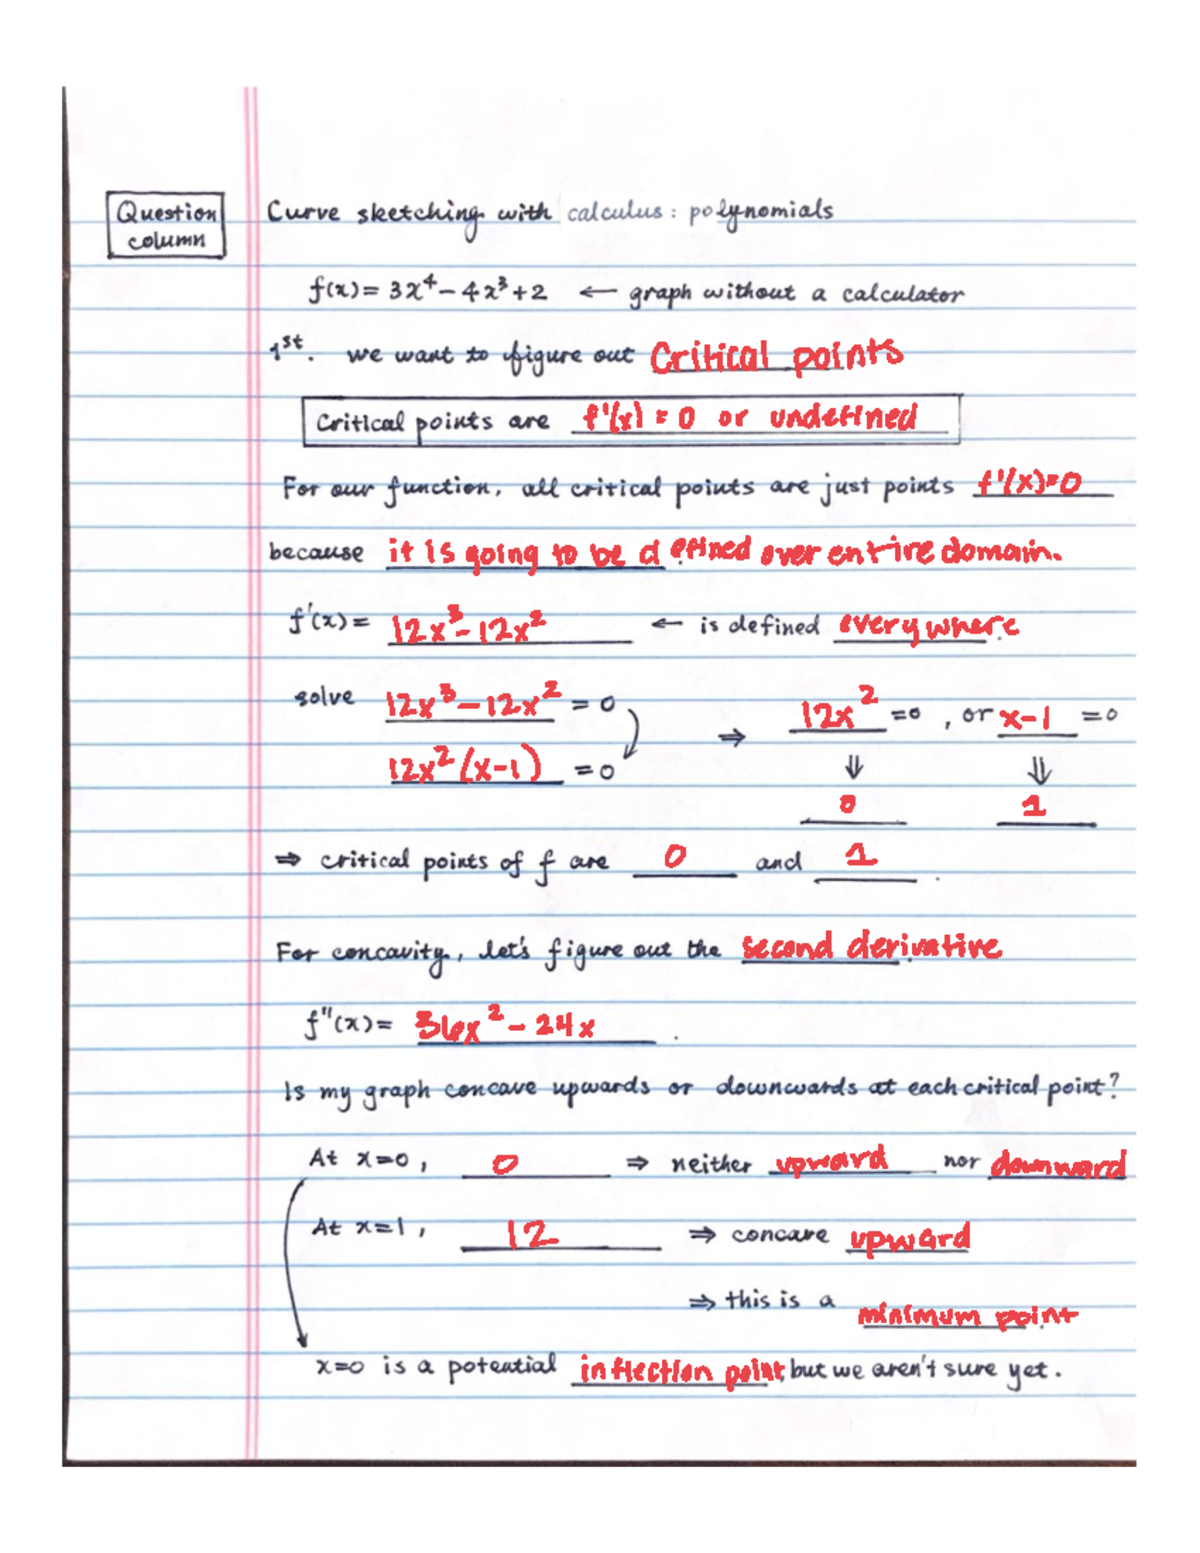 Question
column
Curve sketching with calculus: polynomials
f(x) = 3x⁴ - 4x³ + 2 ← graph without a calculator
1st. we want to figure out Critical points
Critical points are f'(x) = 0 or undefined
For our function, all critical points are just points f'(x)=0
because it is going to be defined over entire domain.
f'(x) = 12x³ - 12x² ← is defined everywhere.
solve 12x³ - 12x² = 0 ⇒ 12x² = 0, or x-1 = 0
12x²(x-1) = 0 ⇓ ⇓
0 1
⇒ critical points of f are 0 and 1.
For concavity, let's figure out the second derivative
f"(x) = 36x² - 24x.
Is my graph concave upwards or downwards at each critical point?
At x=0, 0 ⇒ neither upward nor downward
At x=1, 12 ⇒ concave upward
⇒ this is a minimum point
x=0 is a potential inflection point, but we aren't sure yet.